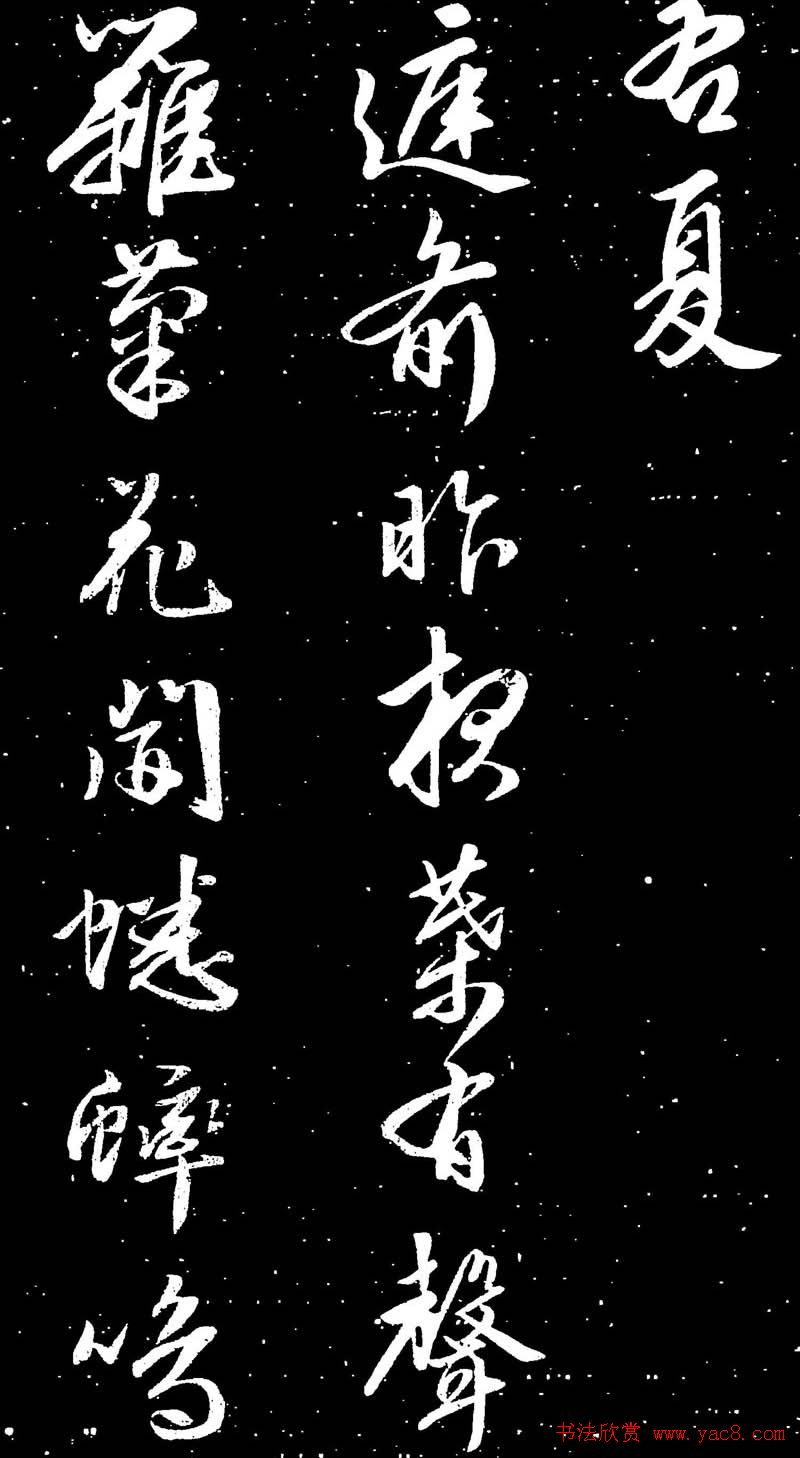 右夏
庭前昨夜葉有聲
籬菊花開蟋蟀鳴
书法欣赏 www.yac8.com